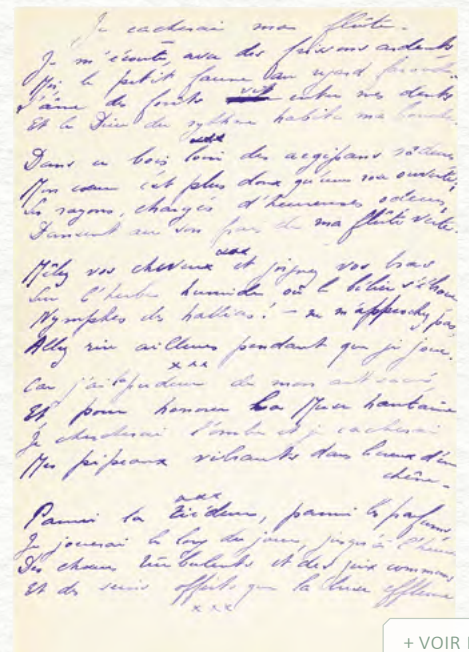 Je cacherai ma flûte.
Je m'écoute, avec des frissons ardents
Moi, le petit faune au regard farouche
L'âme des forêts vit entre mes dents
Et le Dieu du rythme habite ma bouche.
xxx
Dans ce bois, loin des aegipans rôdeurs
Mon cœur est plus doux qu'une rose ouverte;
Les rayons, chargés d'heureuses odeurs,
Dansent au son frais de ma flûte verte.
xxx
Mêlez vos cheveux et joignez vos bras
Sur l'herbe humide où le bélier s'ébroue
Nymphes des halliers! - ne m'approchez pas
Allez rire ailleurs pendant que je joue.
xxx
Car j'ai la pudeur de mon art sacré
Et pour honorer la Muse hautaine
Je chercherai l'ombre et je cacherai
Mes pipeaux vibrants dans le creux d'un
chêne -
xxx
Parmi la tiédeur, parmi les parfums
Je jouerai le long du jour, jusqu'à l'heure
Des chœurs turbulents et des jeux communs
Et des seins offerts que la brise effleure
xxx
+ VOIR